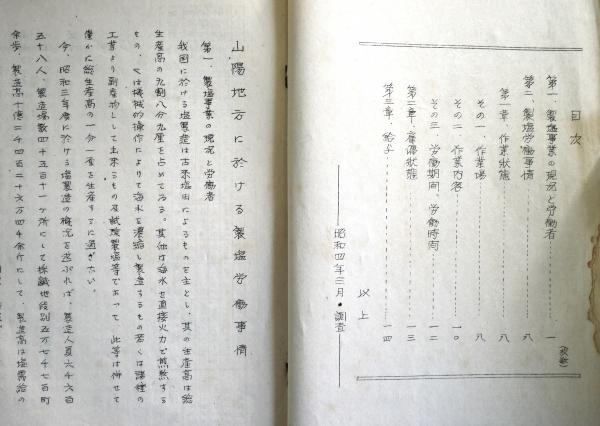 目次
(頁數)
第一、製塩事業の現況と労働者……一
第二、製塩労働事情……八
第一章、作業状態……八
その一、作業場……八
その二、作業内容……一〇
その三、労働期间、労働時间……一二
第二章、雇傭状態……一三
第三章、給与……一四
以上
昭和四年三月・調査
山陽地方に於ける製塩労働事情
第一、製塩事業の現況と労働者
我国に於ける塩製造は古来塩田によるものを主とし、其の生産高は総
生産高の九割八分九厘を占めてゐる。其他は海水を直接火力で煎熬する
もの、又は機械的操作によりて海水を濃縮し製造するもの若くは諸種の
工業より副産物として出来るもの及試験製塩等であって、此等は併せて
僅かに総生産高の一分一厘を生産するに過ぎない。
今、昭和三年度に於ける塩製造の概況を述ぶれば、製造人員六千六百
五十八人、製造場数四千五百十一ヶ所にして採鹹地段別五万七千七百町
余歩、製造高十億二千四百二十六万四千余斤にして、製造高は塩専売の